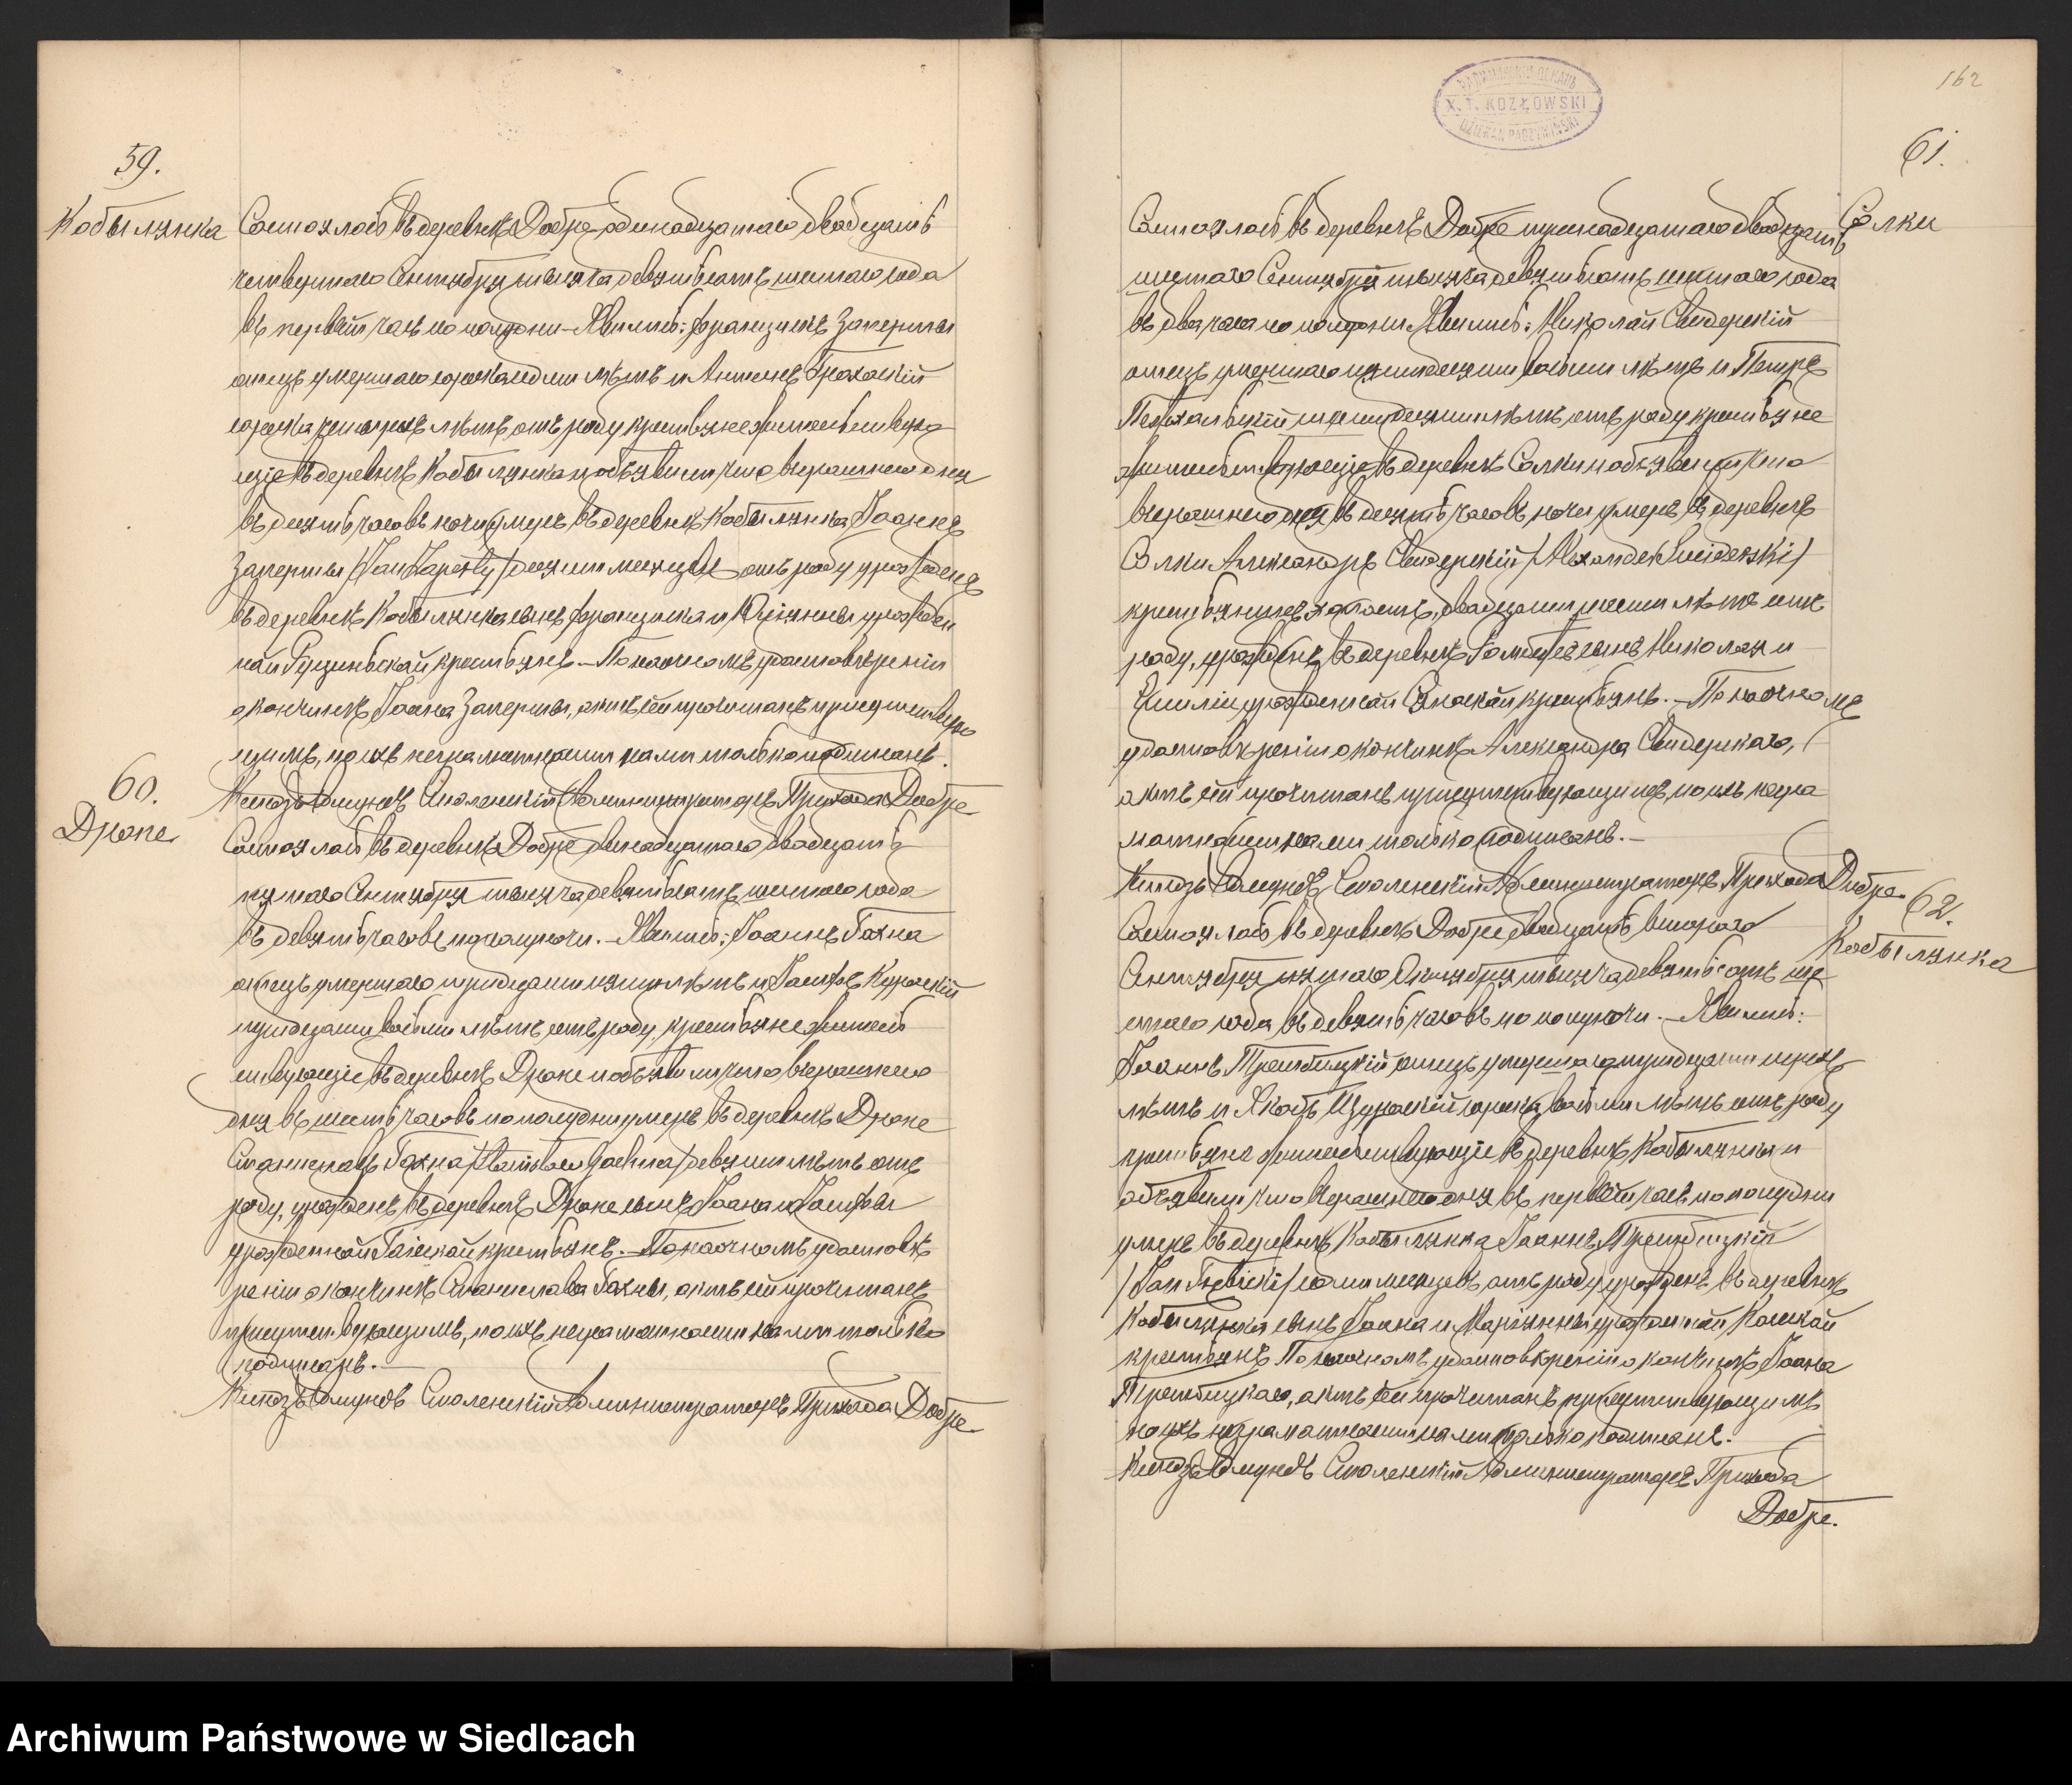 59.
Кобылянка
Состоялось въ деревнѣ Добре одинадцатаго двадцать
четвертаго Сентября тысяча девятьсотъ шестаго года
въ первый часъ по полудни – Явились: Францишекъ Заперты
отецъ умершаго сорока одни лѣтъ и Антонъ Гроховскій
сорока четырехъ лѣтъ отъ роду крестьяне жительствую
щіе въ деревнѣ Кобылянка и объявили что вчерашнего дня
въ десять часовъ ночи умеръ въ деревнѣ Кобылянка Іоаннъ
Заперты /Jan Zaperty/ десять мѣсяцевъ отъ роду урожденъ
въ деревнѣ Кобылянка сынъ Францишка и урожден
ной крестьянъ – По наочномъ удостовѣреніи
о кончинѣ Іоанна Заперты, актъ сей прочитанъ присутствую
щимъ, по ихъ неграматности нами только подписанъ.
Ксендзъ Смоленскій Администраторъ Прихода Добре
60.
Дропе
Состоялось въ деревнѣ Добре двенадцатаго двадцать
пятаго Сентября тысяча девятьсотъ шестаго года
въ девять часовъ полуночи. – Явились: Іоаннъ Гохна
отецъ умершаго тридцати пяти лѣтъ и Іосифъ
тридцати восьми лѣтъ отъ роду, крестьяне житель
ствующіе въ деревнѣ Дропе и объявили что вчерашнего
дня въ шесть часовъ по полудни умеръ въ деревнѣ Дропе
Станиславъ Гохна девяти лѣтъ отъ
роду, урожденъ въ деревнѣ Дропе сынъ Іоанна и Іосифы
урожденной крестьянъ. – По наочномъ удостовѣ
реніи о кончинѣ Станислава Гохны, актъ сей прочитанъ
присутствующимъ, по ихъ неграматности нами только
подписанъ. –
Ксендзъ Смоленскій Администраторъ Прихода Добре
162
X. T. KOZŁOWSKI
61.
Солки
Состоялось въ деревнѣ Добре тринадцатаго двадцать
шестаго Сентября тысяча девятьсотъ шестаго года
въ два часа по полудни Явились: Николай Свидерскій
отецъ умершаго пятидесяти восьми лѣтъ и Петръ
лѣтъ отъ роду крестьяне
жительствующіе въ деревнѣ Солки и объявили что
вчерашнего дня въ десять часовъ ночи умеръ въ деревнѣ
Солки Александръ Свидерскій /Alexander Świderski/
крестьянинъ холостъ, двадцати шести лѣтъ отъ
роду, урожденъ въ деревнѣ сынъ Николая и
Емиліи урожденной крестьянъ. – По наочномъ
удостовѣреніи о кончинѣ Александра Свидерскаго,
актъ сей прочитанъ присутствующимъ, по ихъ негра
матности нами только подписанъ. –
Ксендзъ Смоленскій Администраторъ Прихода Добре.
62.
Кобылянка
Состоялось въ деревнѣ Добре двадцать втораго
Сентября пятаго Октября тысяча девятьсотъ ше
стаго года въ девять часовъ по полуночи. – Явились:
Іоаннъ Трембицкій отецъ умершаго тридцати
лѣтъ и Яковъ сорока восьми лѣтъ отъ роду
крестьяне жительствующіе въ деревнѣ Кобылянка и
объявили что вчерашнего дня въ первый часъ по полудни
умеръ въ деревнѣ Кобылянка Іоаннъ Трембицкій
мѣсяцевъ отъ роду урожденъ въ деревнѣ
Кобылянка сынъ Іоанна и Маріянны урожденной
крестьянъ По наочномъ удостовѣреніи о кончинѣ Іоанна
Трембицкаго, актъ сей прочитанъ присутствующимъ
по ихъ неграматности нами только подписанъ.
Ксендзъ Смоленскій Администраторъ Прихода
Добре.
Archiwum Państwowe w Siedlcach